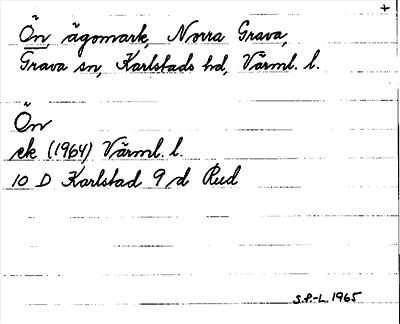 +
Ön, ägomark, Norra Grava,
Grava sn, Karlstads hd, Värml. l.
Ön
ek (1964) Värml. l.
10 D Karlstad 9 d Rud
S.P.-L. 1965